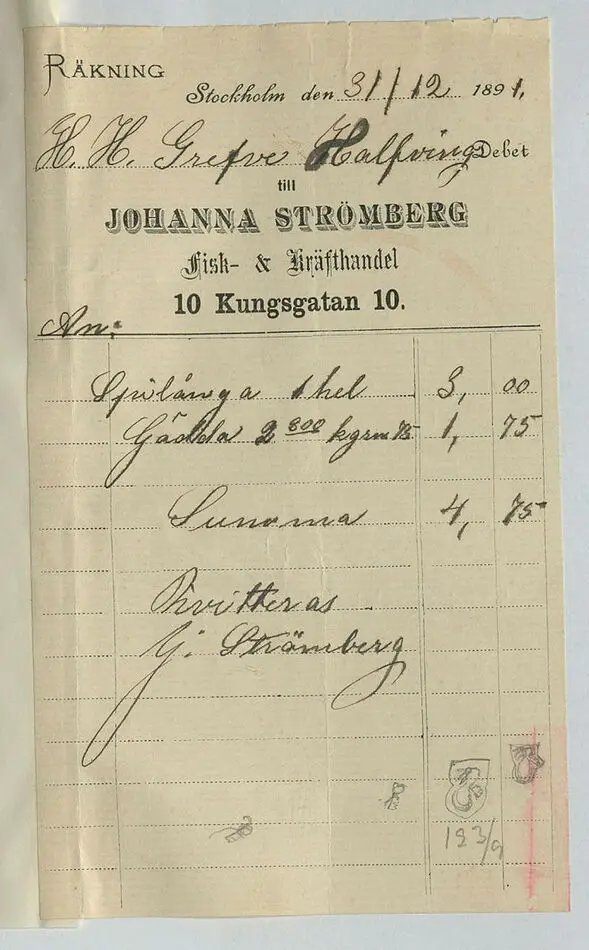 RÄKNING
Stockholm den 31/12 1891.
H. H. Grefve Hallwing Debet
till
JOHANNA STRÖMBERG
Fisk- & Kräfthandel
10 Kungsgatan 10.
An:
Spilånga 1 hel 3, 00
Gädda 2 800 kgrm 75 1, 75
Summa 4, 75
Kvitteras
J. Strömberg
123/9